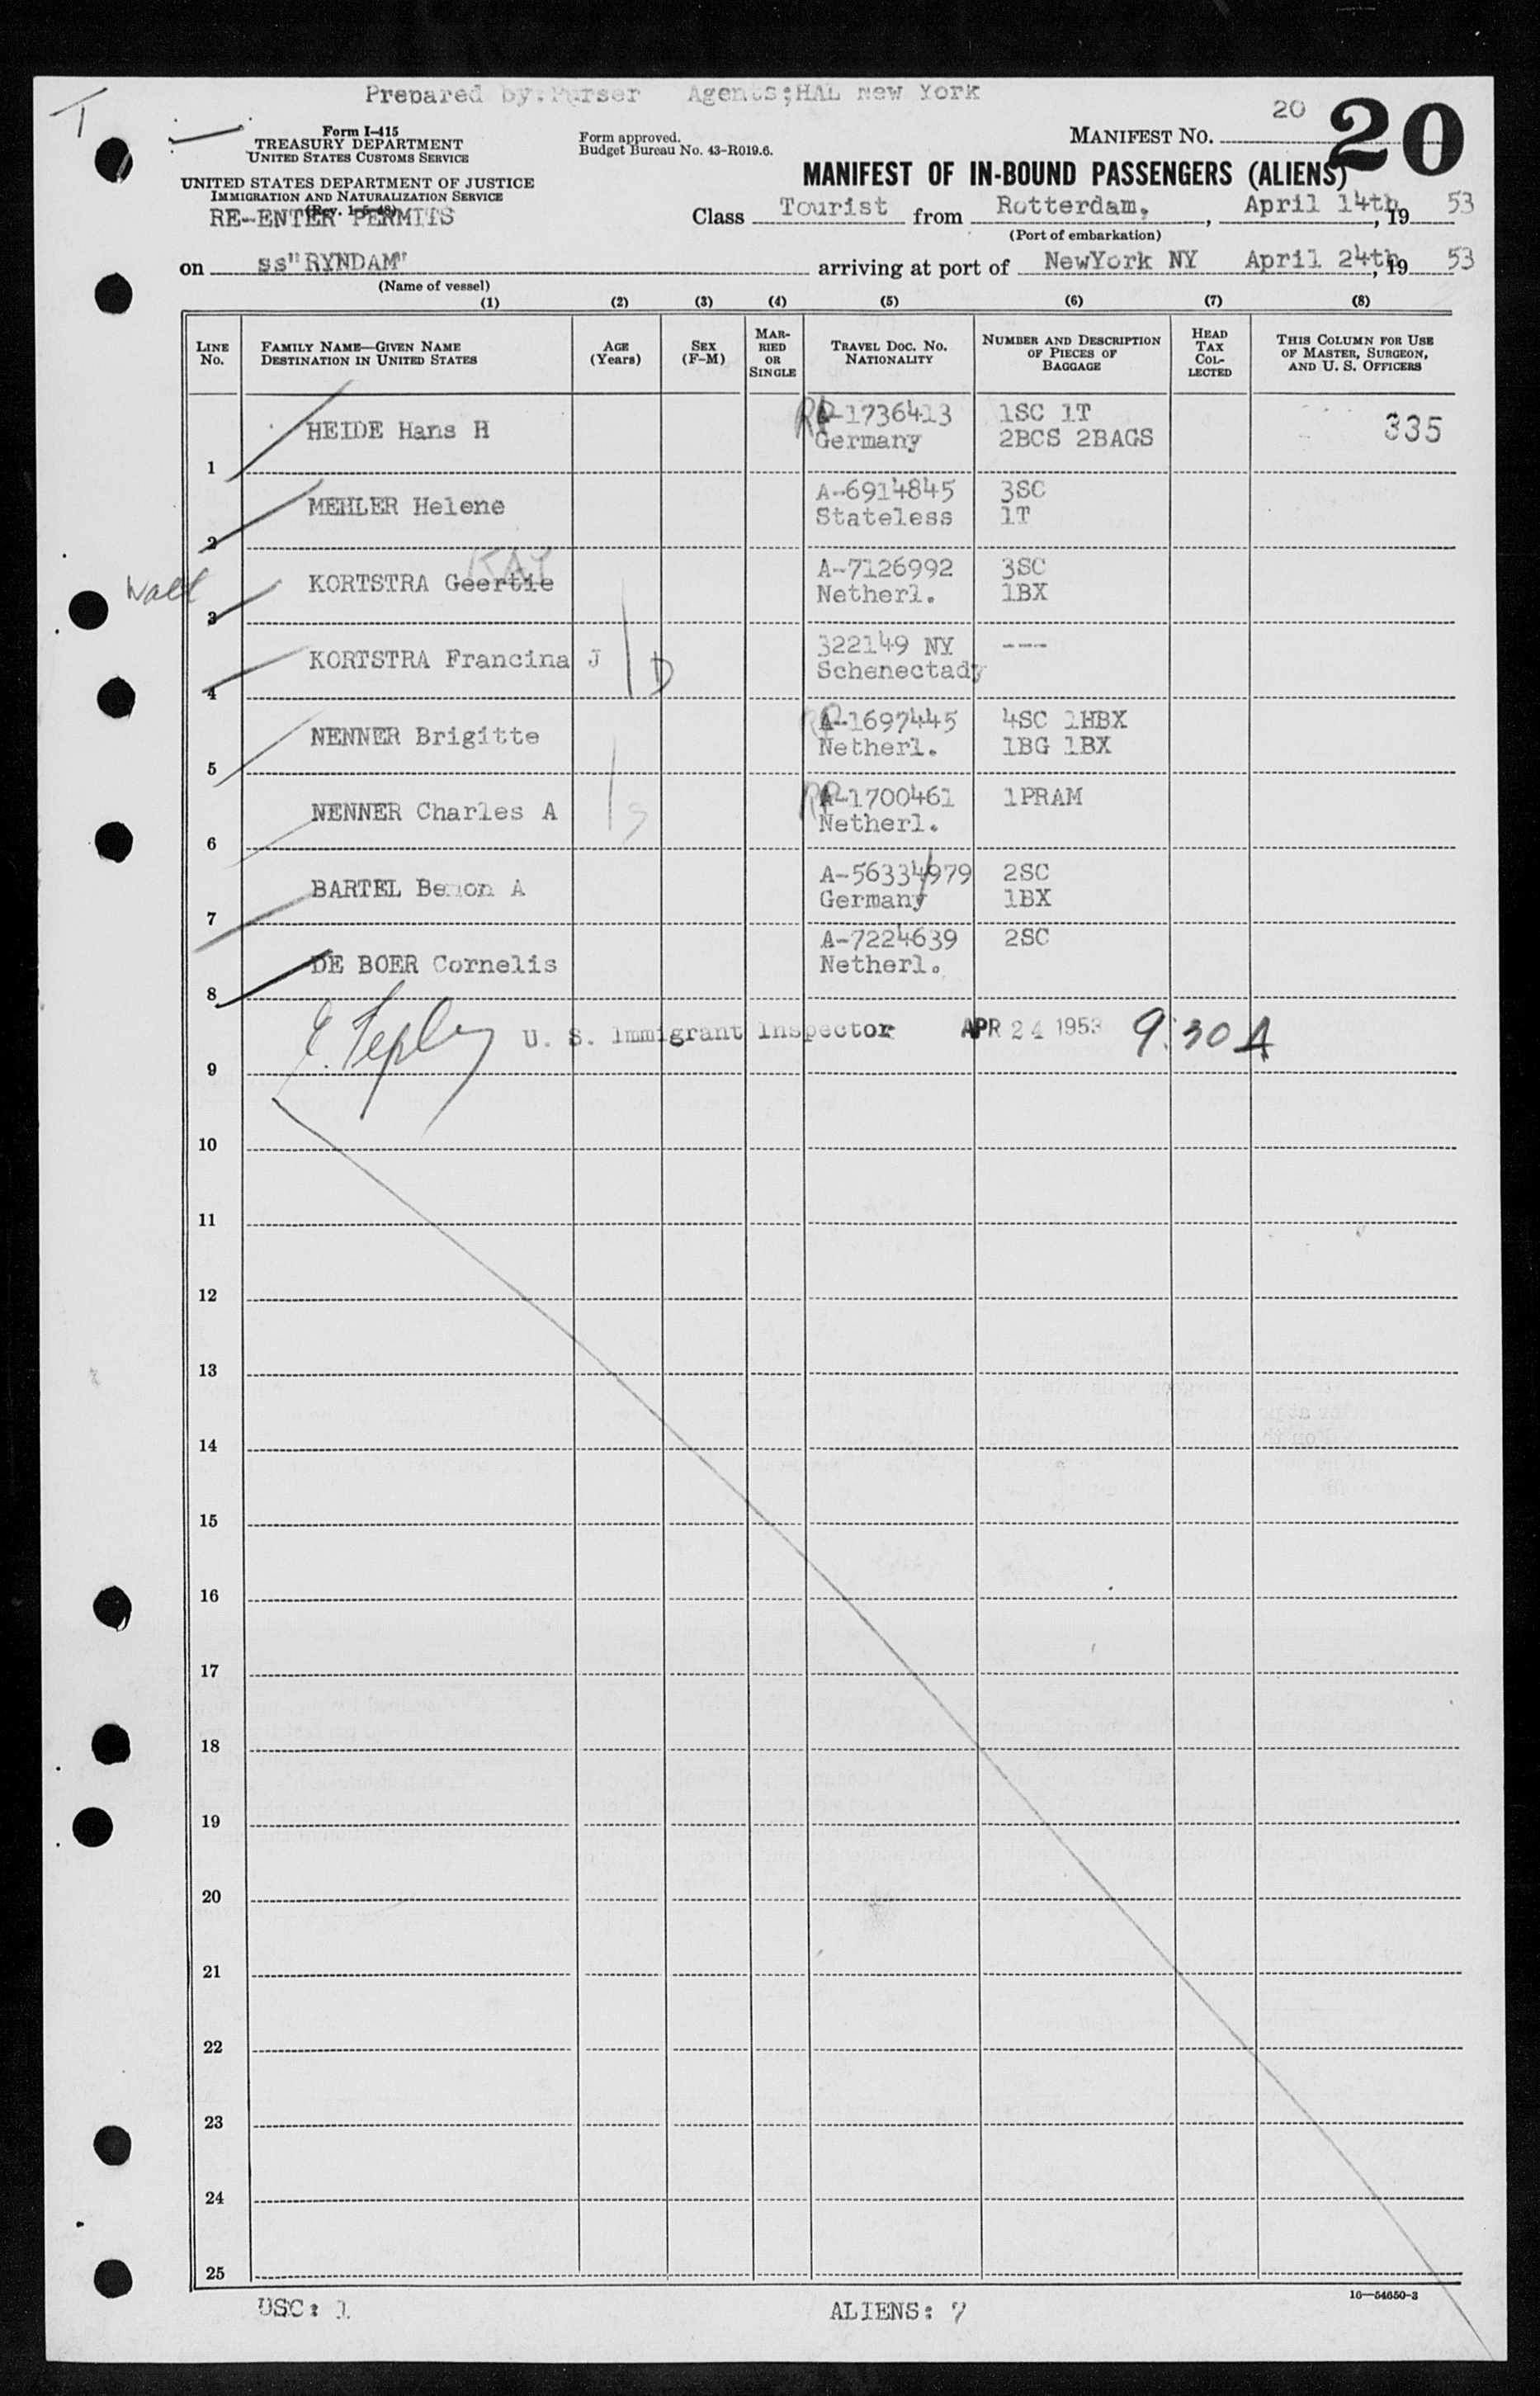 Prepared by:Purser Agents;HAL New York
T
Form I-415
TREASURY DEPARTMENT
UNITED STATES CUSTOMS SERVICE
UNITED STATES DEPARTMENT OF JUSTICE
IMMIGRATION AND NATURALIZATION SERVICE
(Rev. 1-5-48)
RE-ENTER PERMITS
Form approved.
Budget Bureau No. 43-R019.6.
MANIFEST NO. 20
20
MANIFEST OF IN-BOUND PASSENGERS (ALIENS)
Class Tourist from Rotterdam, , April 14th, 19 53
(Port of embarkation)
on ss"RYNDAM" arriving at port of NewYork NY April 24th, 19 53
(Name of vessel)
(1) (2) (3) (4) (5) (6) (7) (8)
LINE No. FAMILY NAME—GIVEN NAME DESTINATION IN UNITED STATES AGE (Years) SEX (F-M) MARRIED OR SINGLE TRAVEL DOC. NO. NATIONALITY NUMBER AND DESCRIPTION OF PIECES OF BAGGAGE HEAD TAX COLLECTED THIS COLUMN FOR USE OF MASTER, SURGEON, AND U. S. OFFICERS
1 HEIDE Hans H RP A-1736413 Germany 1SC 1T 2BCS 2BAGS 335
2 MEHLER Helene A-6914845 Stateless 3SC 1T
3 KORTSTRA Geertie KAY A-7126992 Netherl. 3SC 1BX
4 KORTSTRA Francina J D 322149 NY Schenectady ---
5 NENNER Brigitte RP A-1697445 Netherl. 4SC 1HBX 1BG 1BX
6 NENNER Charles A S RP A-1700461 Netherl. 1PRAM
7 BARTEL Benon A A-56334979 Germany 2SC 1BX
8 DE BOER Cornelis A-7224639 Netherl. 2SC
9 U. S. Immigrant Inspector APR 24 1953 9:30 A
10
11
12
13
14
15
16
17
18
19
20
21
22
23
24
25
16—54650-3
USC: 1 ALIENS: 7